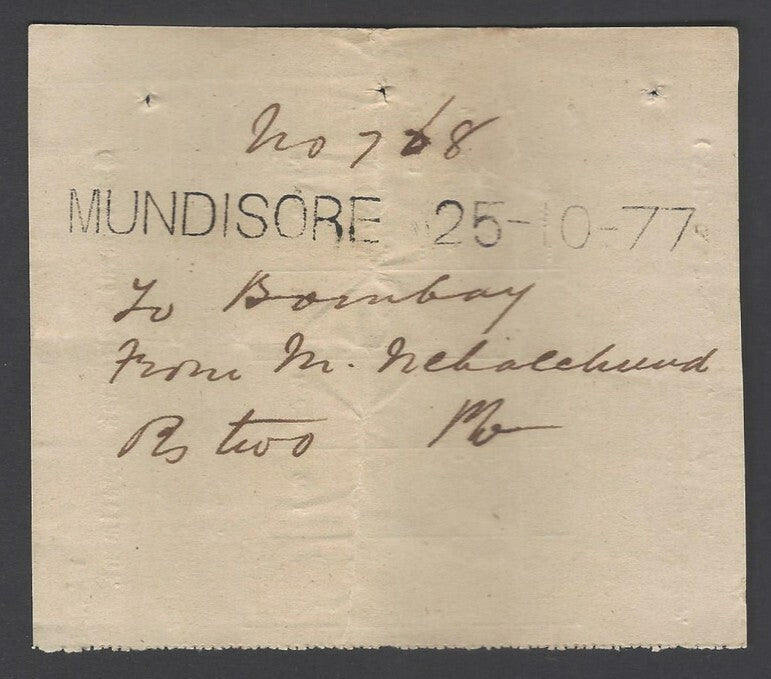 No 768
MUNDISORE 25-10-77
To Bombay
From M. Nehalchund
Rs two